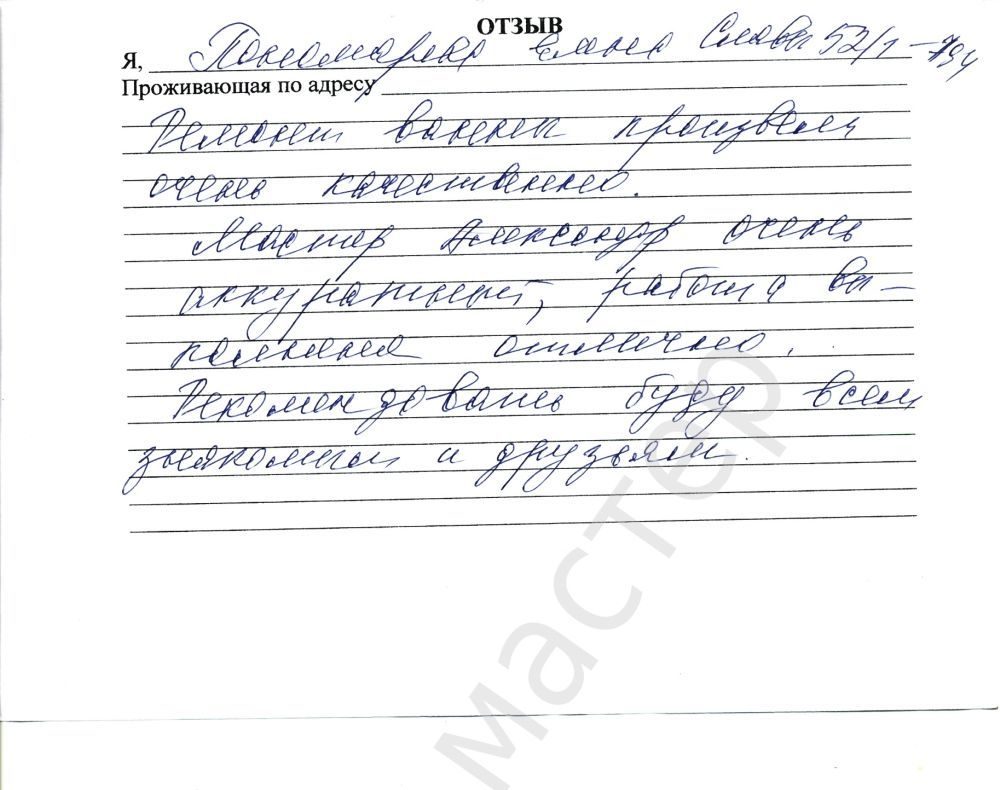 ОТЗЫВ
Я, Пономарева Елена Славы 52/1 - 794
Проживающая по адресу
Ремонт ванны произвели
очень качественно.
Мастер Александр очень
аккуратный, работа вы-
полнена отлично.
Рекомендовать буду всем
знакомым и друзьям.
мастер